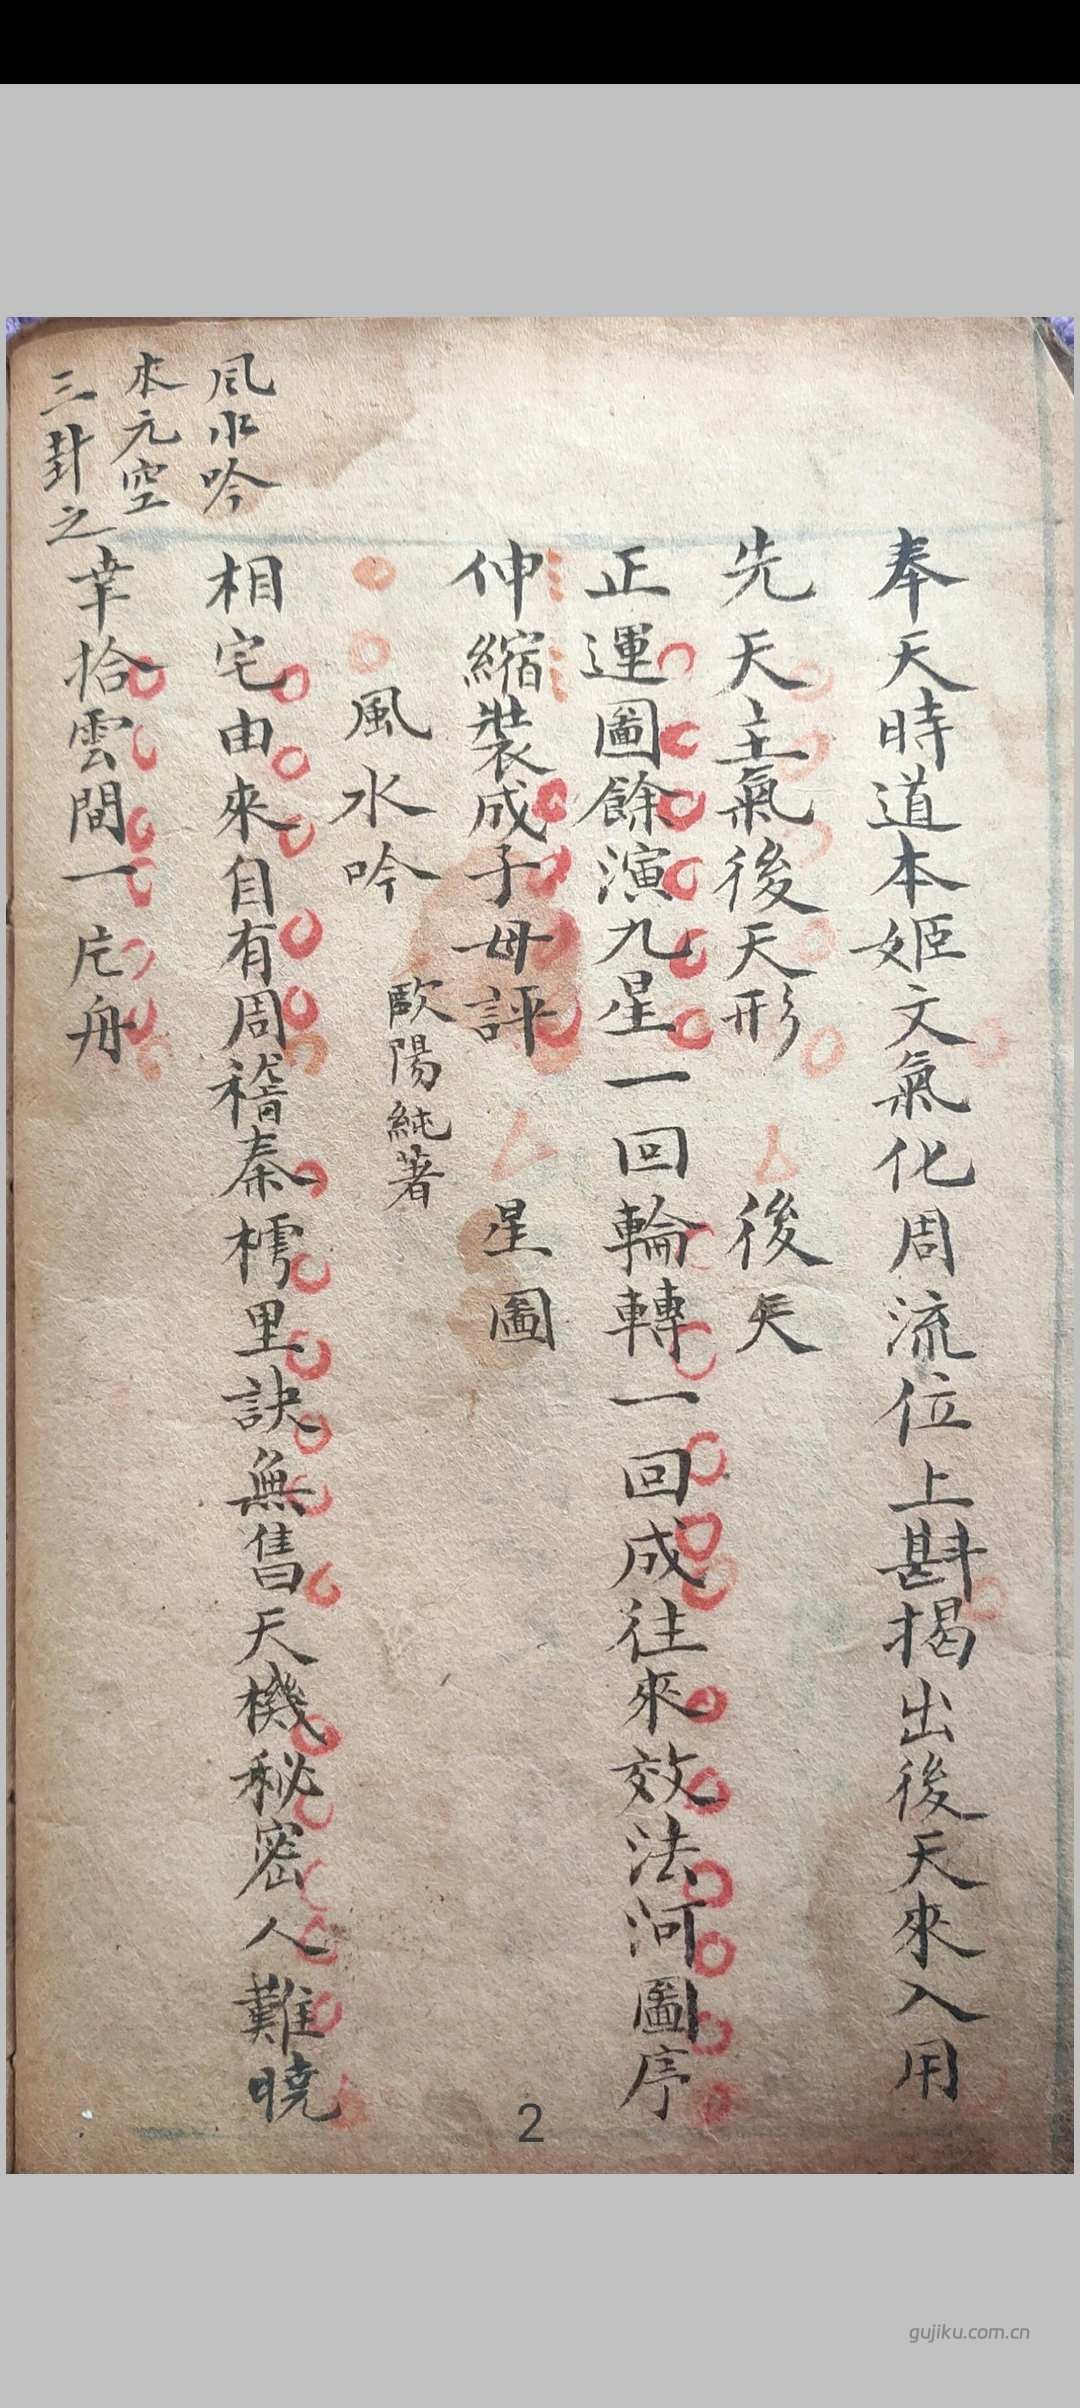 奉天時道本姬文氣化周流位上斟揭出後天來入用
先天主氣後天形 後天
正運圖餘演九星一回輪轉一回成往來效法河圖序
伸縮裝成子母評 星圖
風水吟 歐陽純著
風水吟
相宅由來自有周稽秦樗里訣無售天機秘密人難曉
本元空
三封之
幸拾雲間一片舟
2
gujiku.com.cn